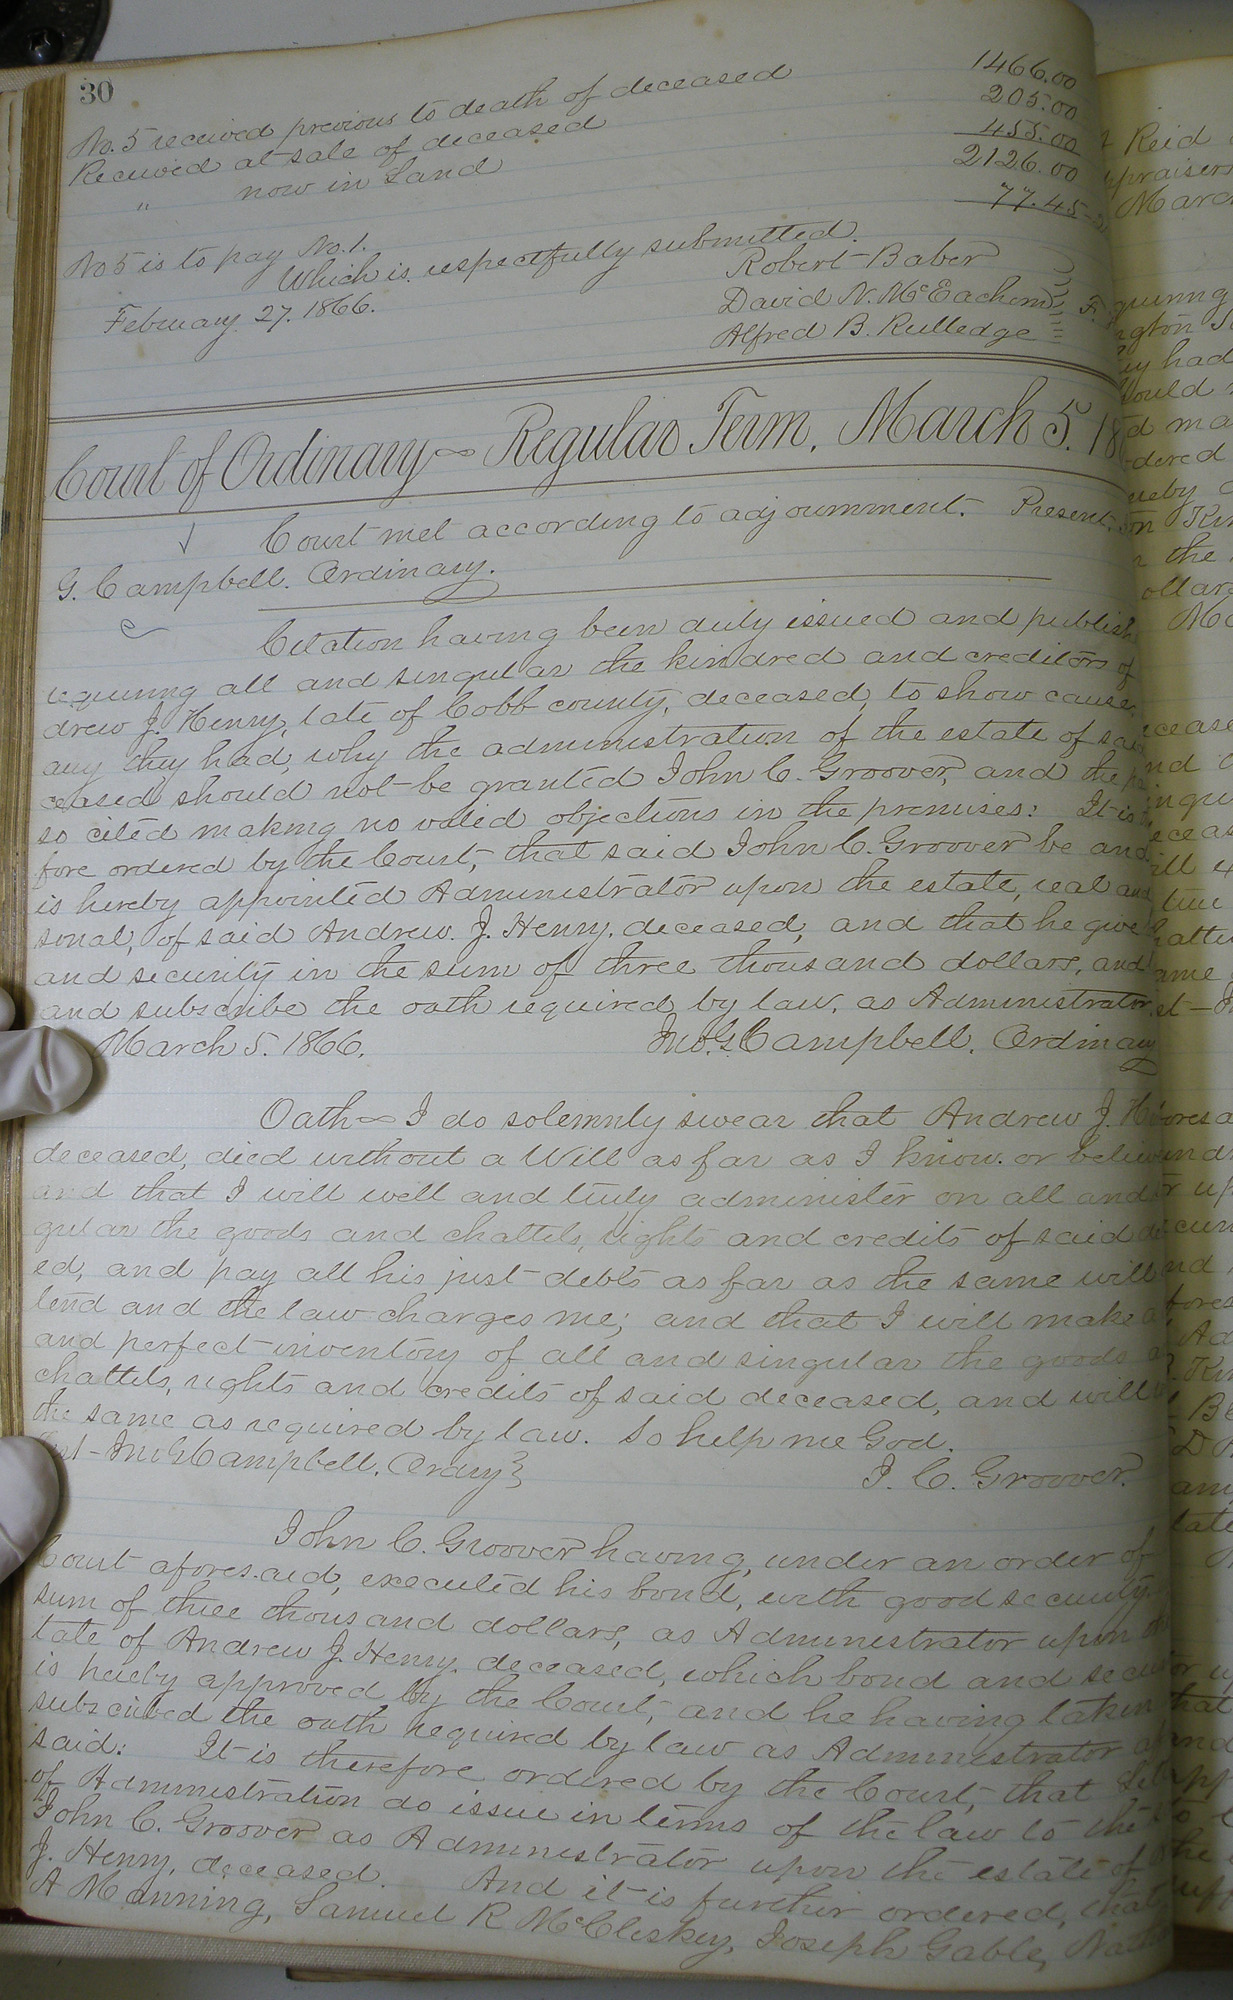 30
No. 5 received previous to death of deceased 1466.00
Received at sale of deceased 205.00
" now in Land 455.00
2126.00
No 5 is to pay No. 1. 77.45
Which is respectfully submitted.
February 27. 1866. Robert Baber
David N. McEachern
Alfred B. Rulledge
Court of Ordinary Regular Term. March 5. 18
Court met according to adjournment. Present.
G. Campbell. Ordinary.
Citation having been duly issued and publish
requiring all and singular the kindred and creditors of
drew J. Henry, late of Cobb county, deceased, to show cause
any they had, why the administration of the estate of said
ceased should not be granted John C. Groover, and the
so cited making no valid objections in the premises: It is
fore ordered by the Court, that said John C. Groover be and
is hereby appointed Administrator upon the estate, real and
sonal, of said Andrew. J. Henry, deceased, and that he give
and security in the sum of three thousand dollars, and
and subscribe the oath required by law, as Administrator.
March 5. 1866. Jno. G. Campbell. Ordinary
Oath I do solemnly swear that Andrew J. H
deceased, died without a Will as far as I know. or believ
and that I will well and truly administer on all and
gular the goods and chattels, rights and credits of said de
ed, and pay all his just debts as far as the same will
tend and the law charges me; and that I will make a
and perfect inventory of all and singular the goods a
chattels, rights and credits of said deceased, and will
the same as required by law. So help me God.
Jno G Campbell. Ordiny J. C. Groover.
John C. Groover having, under an order of
Court aforesaid, executed his bond, with good security,
sum of three thousand dollars, as Administrator upon the
tate of Andrew J. Henry, deceased, which bond and secu
is hereby approved by the Court, and he having taken
subscribed the oath required by law as Administrator a
said: It is therefore ordered by the Court, that Let
of Administration do issue in terms of the law to the
John C. Groover as Administrator upon the estate of
J. Henry, deceased. And it is further ordered, that
A Manning, Samuel R McCleskey, Joseph Gable,